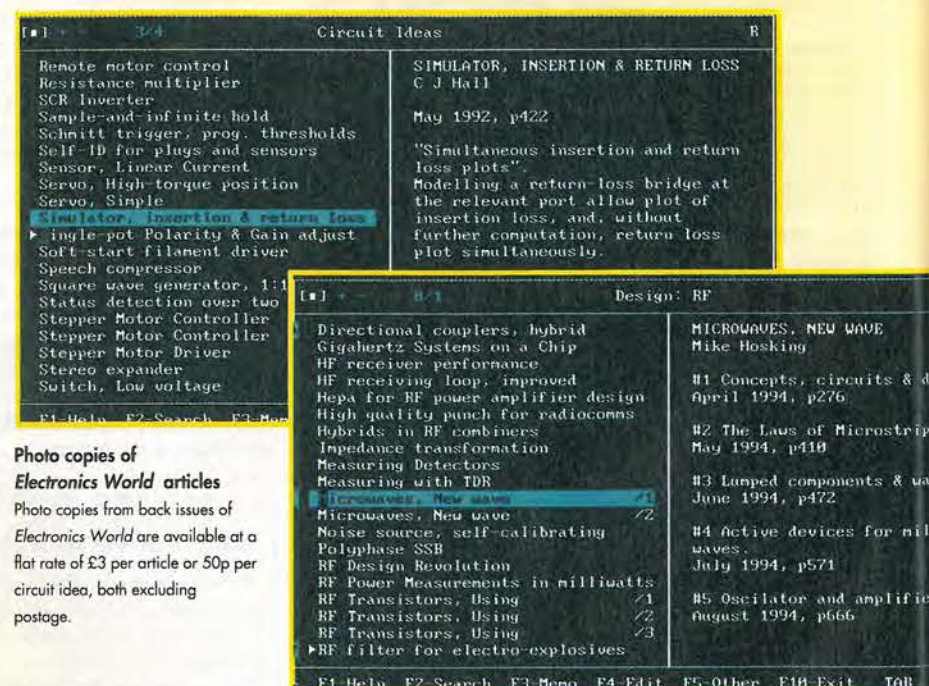 [■] + - 3/4 Circuit Ideas R
Remote motor control
Resistance multiplier
SCR Inverter
Sample-and-infinite hold
Schmitt trigger, prog. thresholds
Self-ID for plugs and sensors
Sensor, Linear Current
Servo, High-torque position
Servo, Simple
Simulator, insertion & return loss
ingle-pot Polarity & Gain adjust
Soft-start filament driver
Speech compressor
Square wave generator, 1:1
Status detection over two
Stepper Motor Controller
Stepper Motor Controller
Stepper Motor Driver
Stereo expander
Switch, Low voltage
F1-Help F2-Search F3-Mem
SIMULATOR, INSERTION & RETURN LOSS
C J Hall
May 1992, p422
"Simultaneous insertion and return
loss plots".
Modelling a return-loss bridge at
the relevant port allow plot of
insertion loss, and, without
further computation, return loss
plot simultaneously.
[■] + - 8/1 Design: RF
Directional couplers, hybrid
Gigahertz Systems on a Chip
HF receiver performance
HF receiving loop, improved
Hepa for RF power amplifier design
High quality punch for radiocomms
Hybrids in RF combiners
Impedance transformation
Measuring Detectors
Measuring with TDR
Microwaves, New wave /1
Microwaves, New wave /2
Noise source, self-calibrating
Polyphase SSB
RF Design Revolution
RF Power Measurements in milliwatts
RF Transistors, Using /1
RF Transistors, Using /2
RF Transistors, Using /3
RF filter for electro-explosives
MICROWAVES, NEW WAVE
Mike Hosking
#1 Concepts, circuits & d
April 1994, p276
#2 The Laws of Microstrip
May 1994, p410
#3 Lumped components & wa
June 1994, p472
#4 Active devices for mil
waves.
July 1994, p571
#5 Oscilator and amplifie
August 1994, p666
F1-Help F2-Search F3-Memo F4-Edit F5-Other F10-Exit TAB
Photo copies of
Electronics World articles
Photo copies from back issues of
Electronics World are available at a
flat rate of £3 per article or 50p per
circuit idea, both excluding
postage.